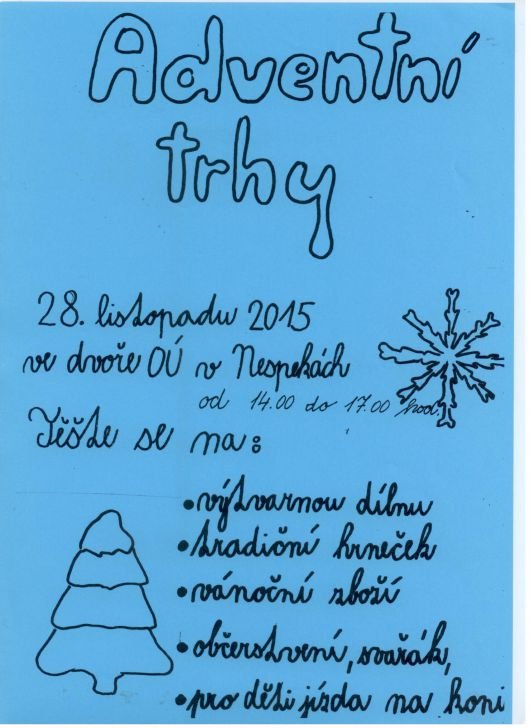 Adventní
trhy
28. listopadu 2015
ve dvoře OÚ v Nespekách
od 14.00 do 17.00 hod.
Těšte se na:
• výtvarnou dílnu
• tradiční hrneček
• vánoční zboží
• občerstvení, svařák,
• pro děti jízda na koni